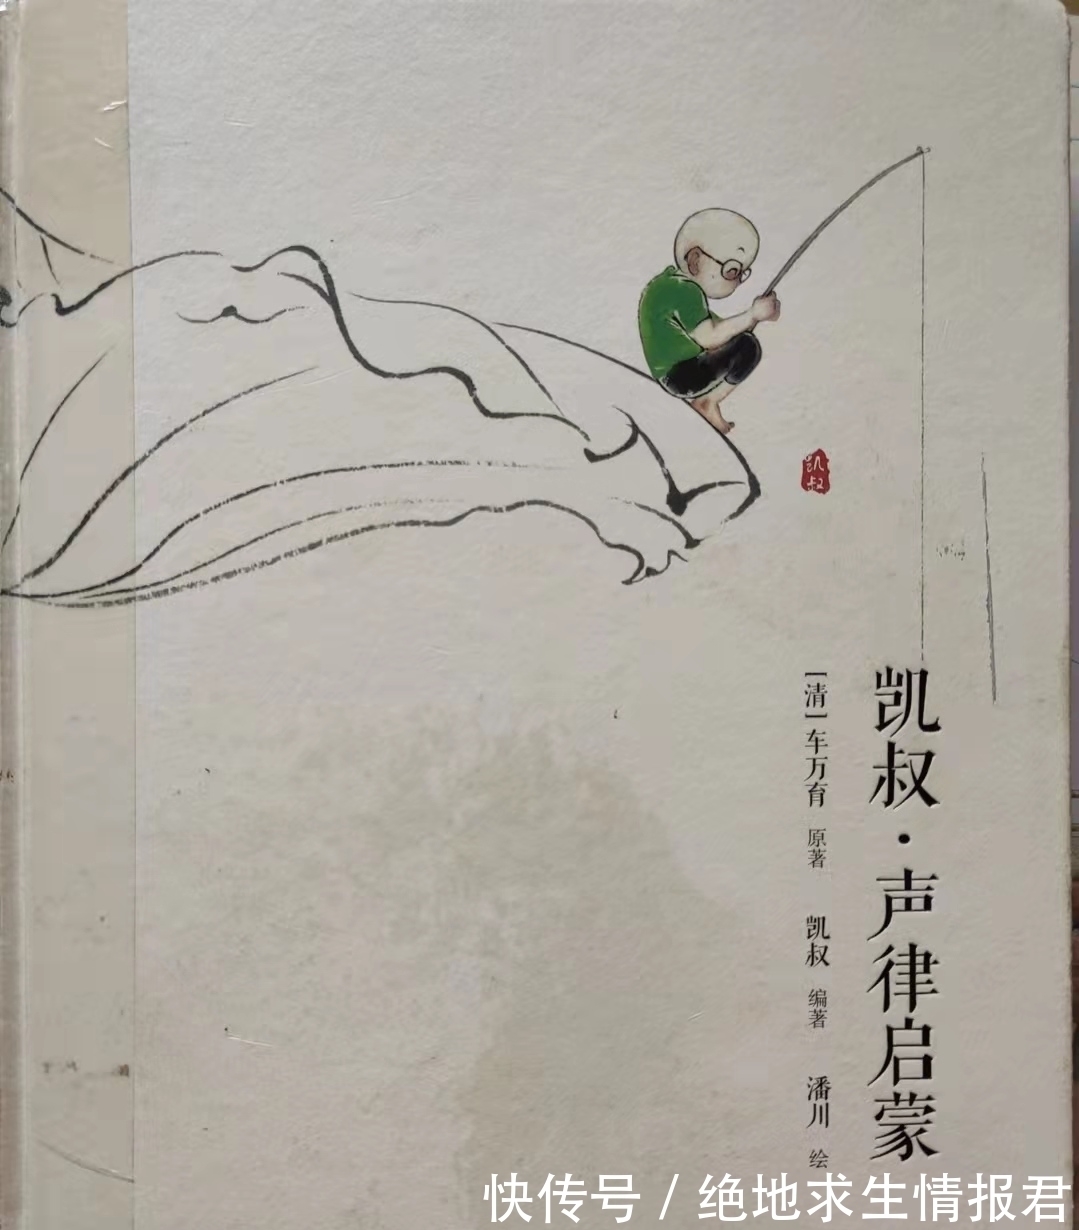 凯叔
凯叔·声律启蒙
[清]车万育 原著 凯叔 编著 潘川 绘
快传号 / 绝地求生情报君